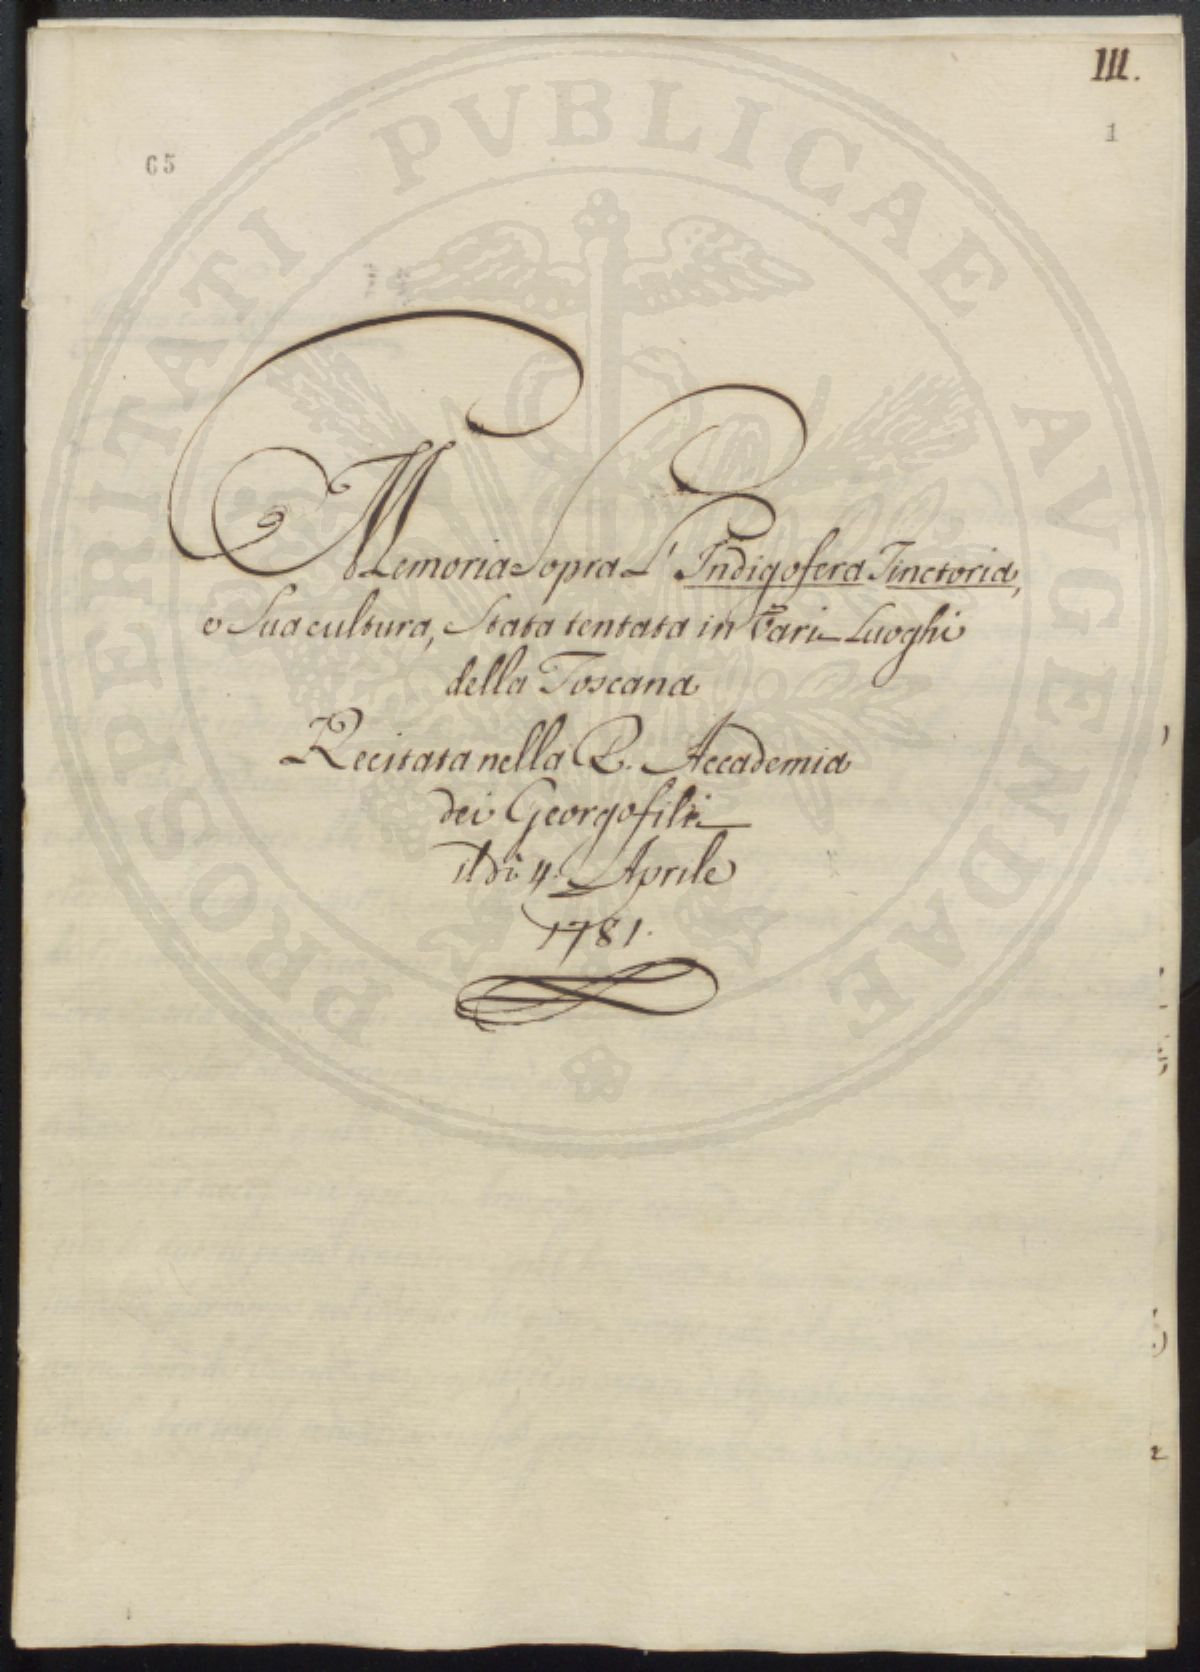 III.
1
65
PROSPERITATI PVBLICAE AVGENDAE
Memoria Sopra L' Indigofera Tinctoria,
e Sua cultura, Stata tentata in Varj Luoghi
della Toscana
Recitata nella R. Accademia
dei Georgofili
il dì 4. Aprile
1781.